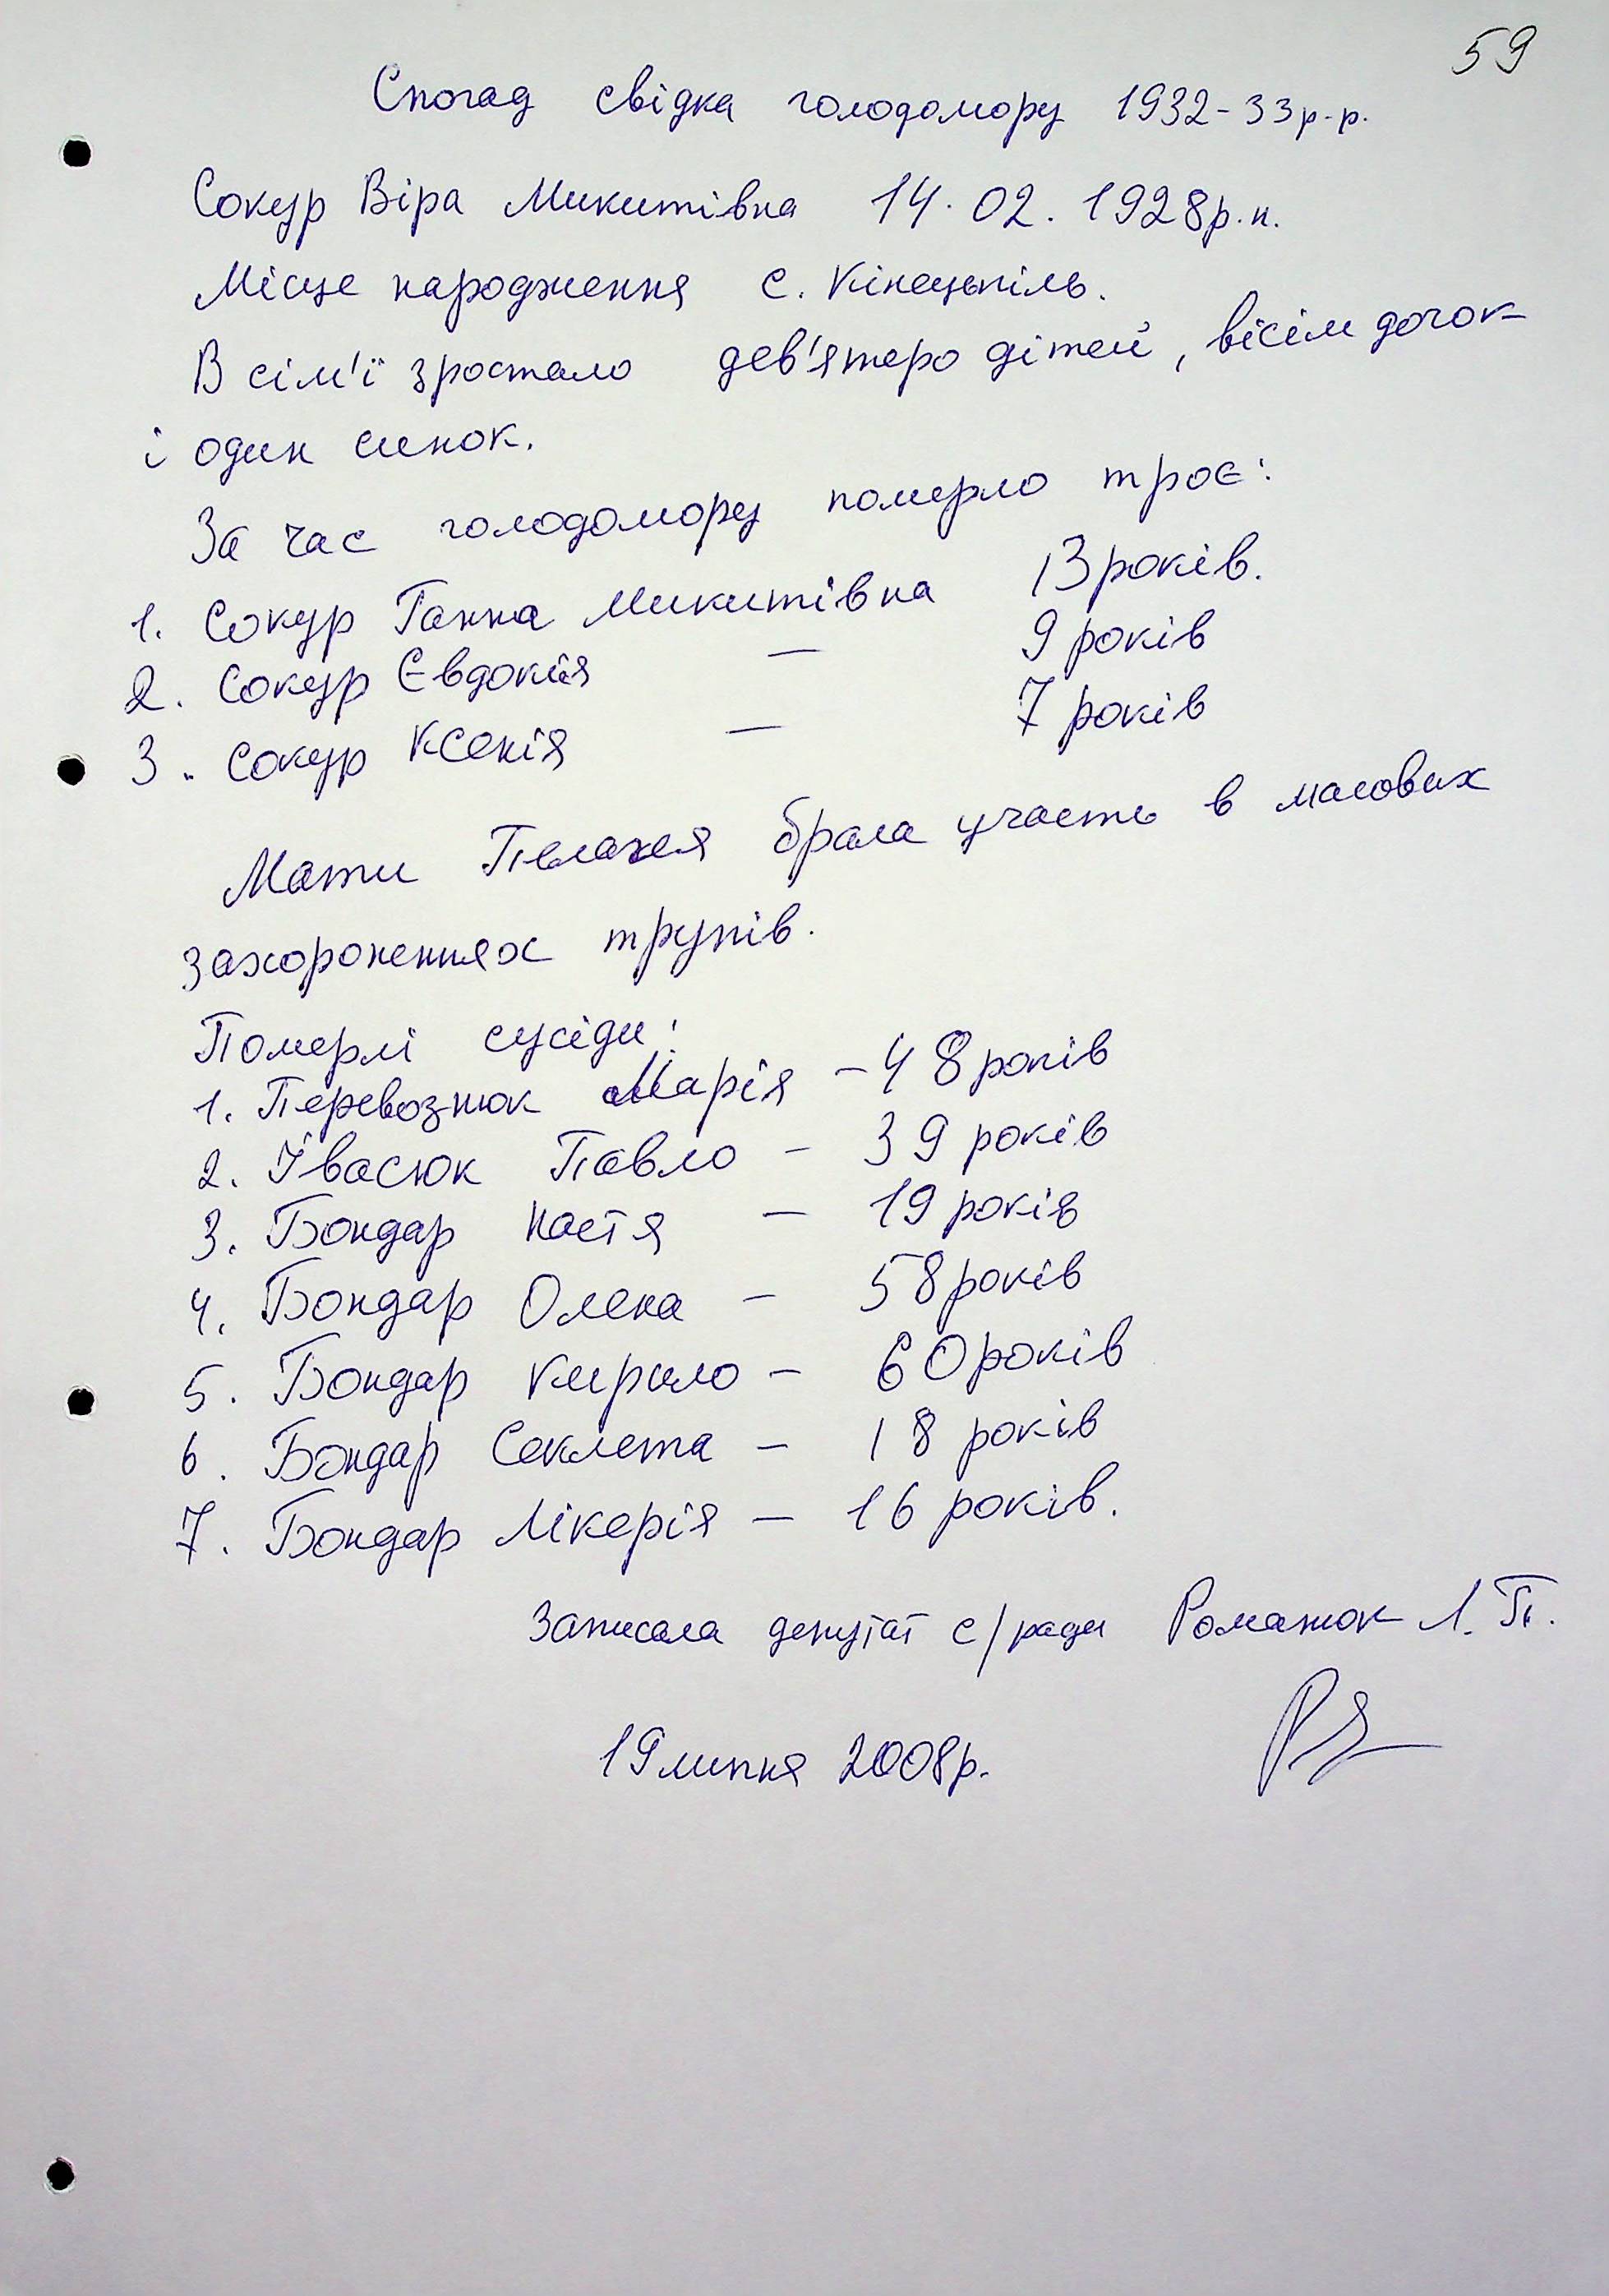 59
Спогад свідка голодомору 1932-33р-р.
Сокур Віра Микитівна 14.02.1928р.н.
Місце народження с. Кінецьпіль.
В сім'ї зростало дев'ятеро дітей, вісім дочок
і один синок.
За час голодомору померло троє:
1. Сокур Ганна Микитівна 13 років.
2. Сокур Євдокія — 9 років
3. Сокур Ксенія — 7 років
Мати Пелагея брала участь в масових
захороненнях трупів.
Померлі сусіди:
1. Перевознюк Марія - 48 років
2. Івасюк Павло - 39 років
3. Бондар Настя — 19 років
4. Бондар Олена - 58 років
5. Бондар Кирило - 60 років
6. Бондар Секлета - 18 років
7. Бондар Лікерія — 16 років.
Записала депутат с/ради Романюк Л.П.
19 липня 2008р.